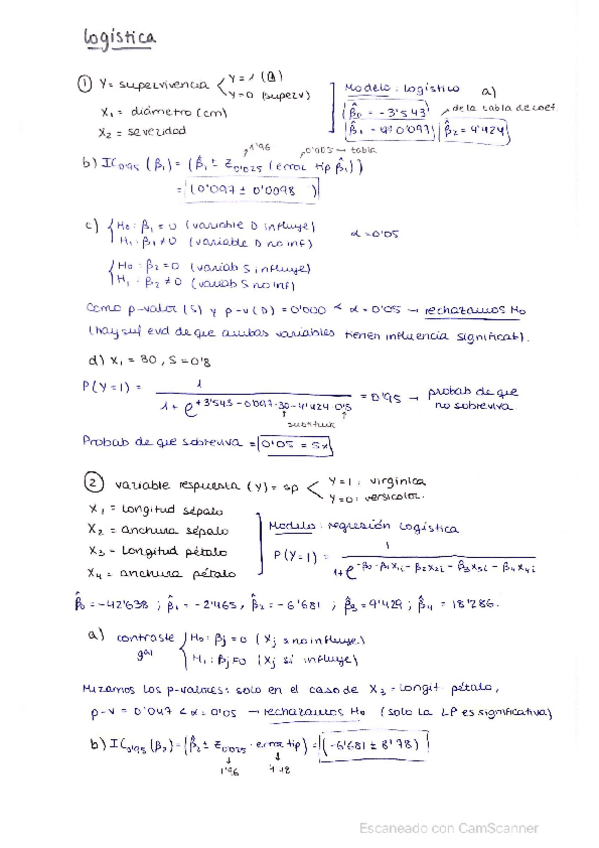 Logística
① Y = supervivencia Y=1 (D) Modelo: logístico a)
Y=0 (superv)
X₁ = diámetro (cm) β̂₀ = -3'543 de la tabla de coef
X₂ = severidad β̂₁ = 0'097 β̂₂ = 4'424
1'96 0'005 → tabla
b) IC₀'₉₅ (β₁) = (β̂₁ ± Z₀'₀₂₅ (error típ β̂₁))
= (0'097 ± 0'0098)
c) H₀: β₁ = 0 (variable D influye) α = 0'05
H₁: β₁ ≠ 0 (variable D no inf)
H₀: β₂ = 0 (variab S influye)
H₁: β₂ ≠ 0 (variab S no inf)
Como p-valor (S) y p-v (D) = 0'000 < α = 0'05 → rechazamos H₀
(hay suf evid de que ambas variables tienen influencia significat).
d) X₁ = 30, S = 0'8
P(Y=1) = 1 / 1 + e^(+3'543 - 0'097·30 - 4'424·0'8) = 0'95 → probab de que no sobreviva
sustituir
Probab de que sobreviva = 0'05 = 5%
② variable respuesta (Y) = sp Y=1: virginica
Y=0: versicolor.
X₁ = longitud sépalo
X₂ = anchura sépalo Modelo: regresión logística
X₃ = Longitud pétalo P(Y=1) = 1 / 1+e^(-β₀ - β₁X₁ᵢ - β₂X₂ᵢ - β₃X₃ᵢ - β₄X₄ᵢ)
X₄ = anchura pétalo
β̂₀ = -42'638 ; β̂₁ = -2'465, β̂₂ = -6'681 ; β̂₃ = 9'429 ; β̂₄ = 18'286.
a) contraste gal H₀: βj = 0 (Xj no influye)
H₁: βj ≠ 0 (Xj sí influye)
Miramos los p-valores: solo en el caso de X₃ = longit pétalo,
p-v = 0'047 < α = 0'05 → rechazamos H₀ (solo la LP es significativa)
b) IC₀'₉₅ (β₂) = (β̂₂ ± Z₀'₀₂₅ · error típ) = (-6'681 ± 8'78)
1'96 4'48
Escaneado con CamScanner